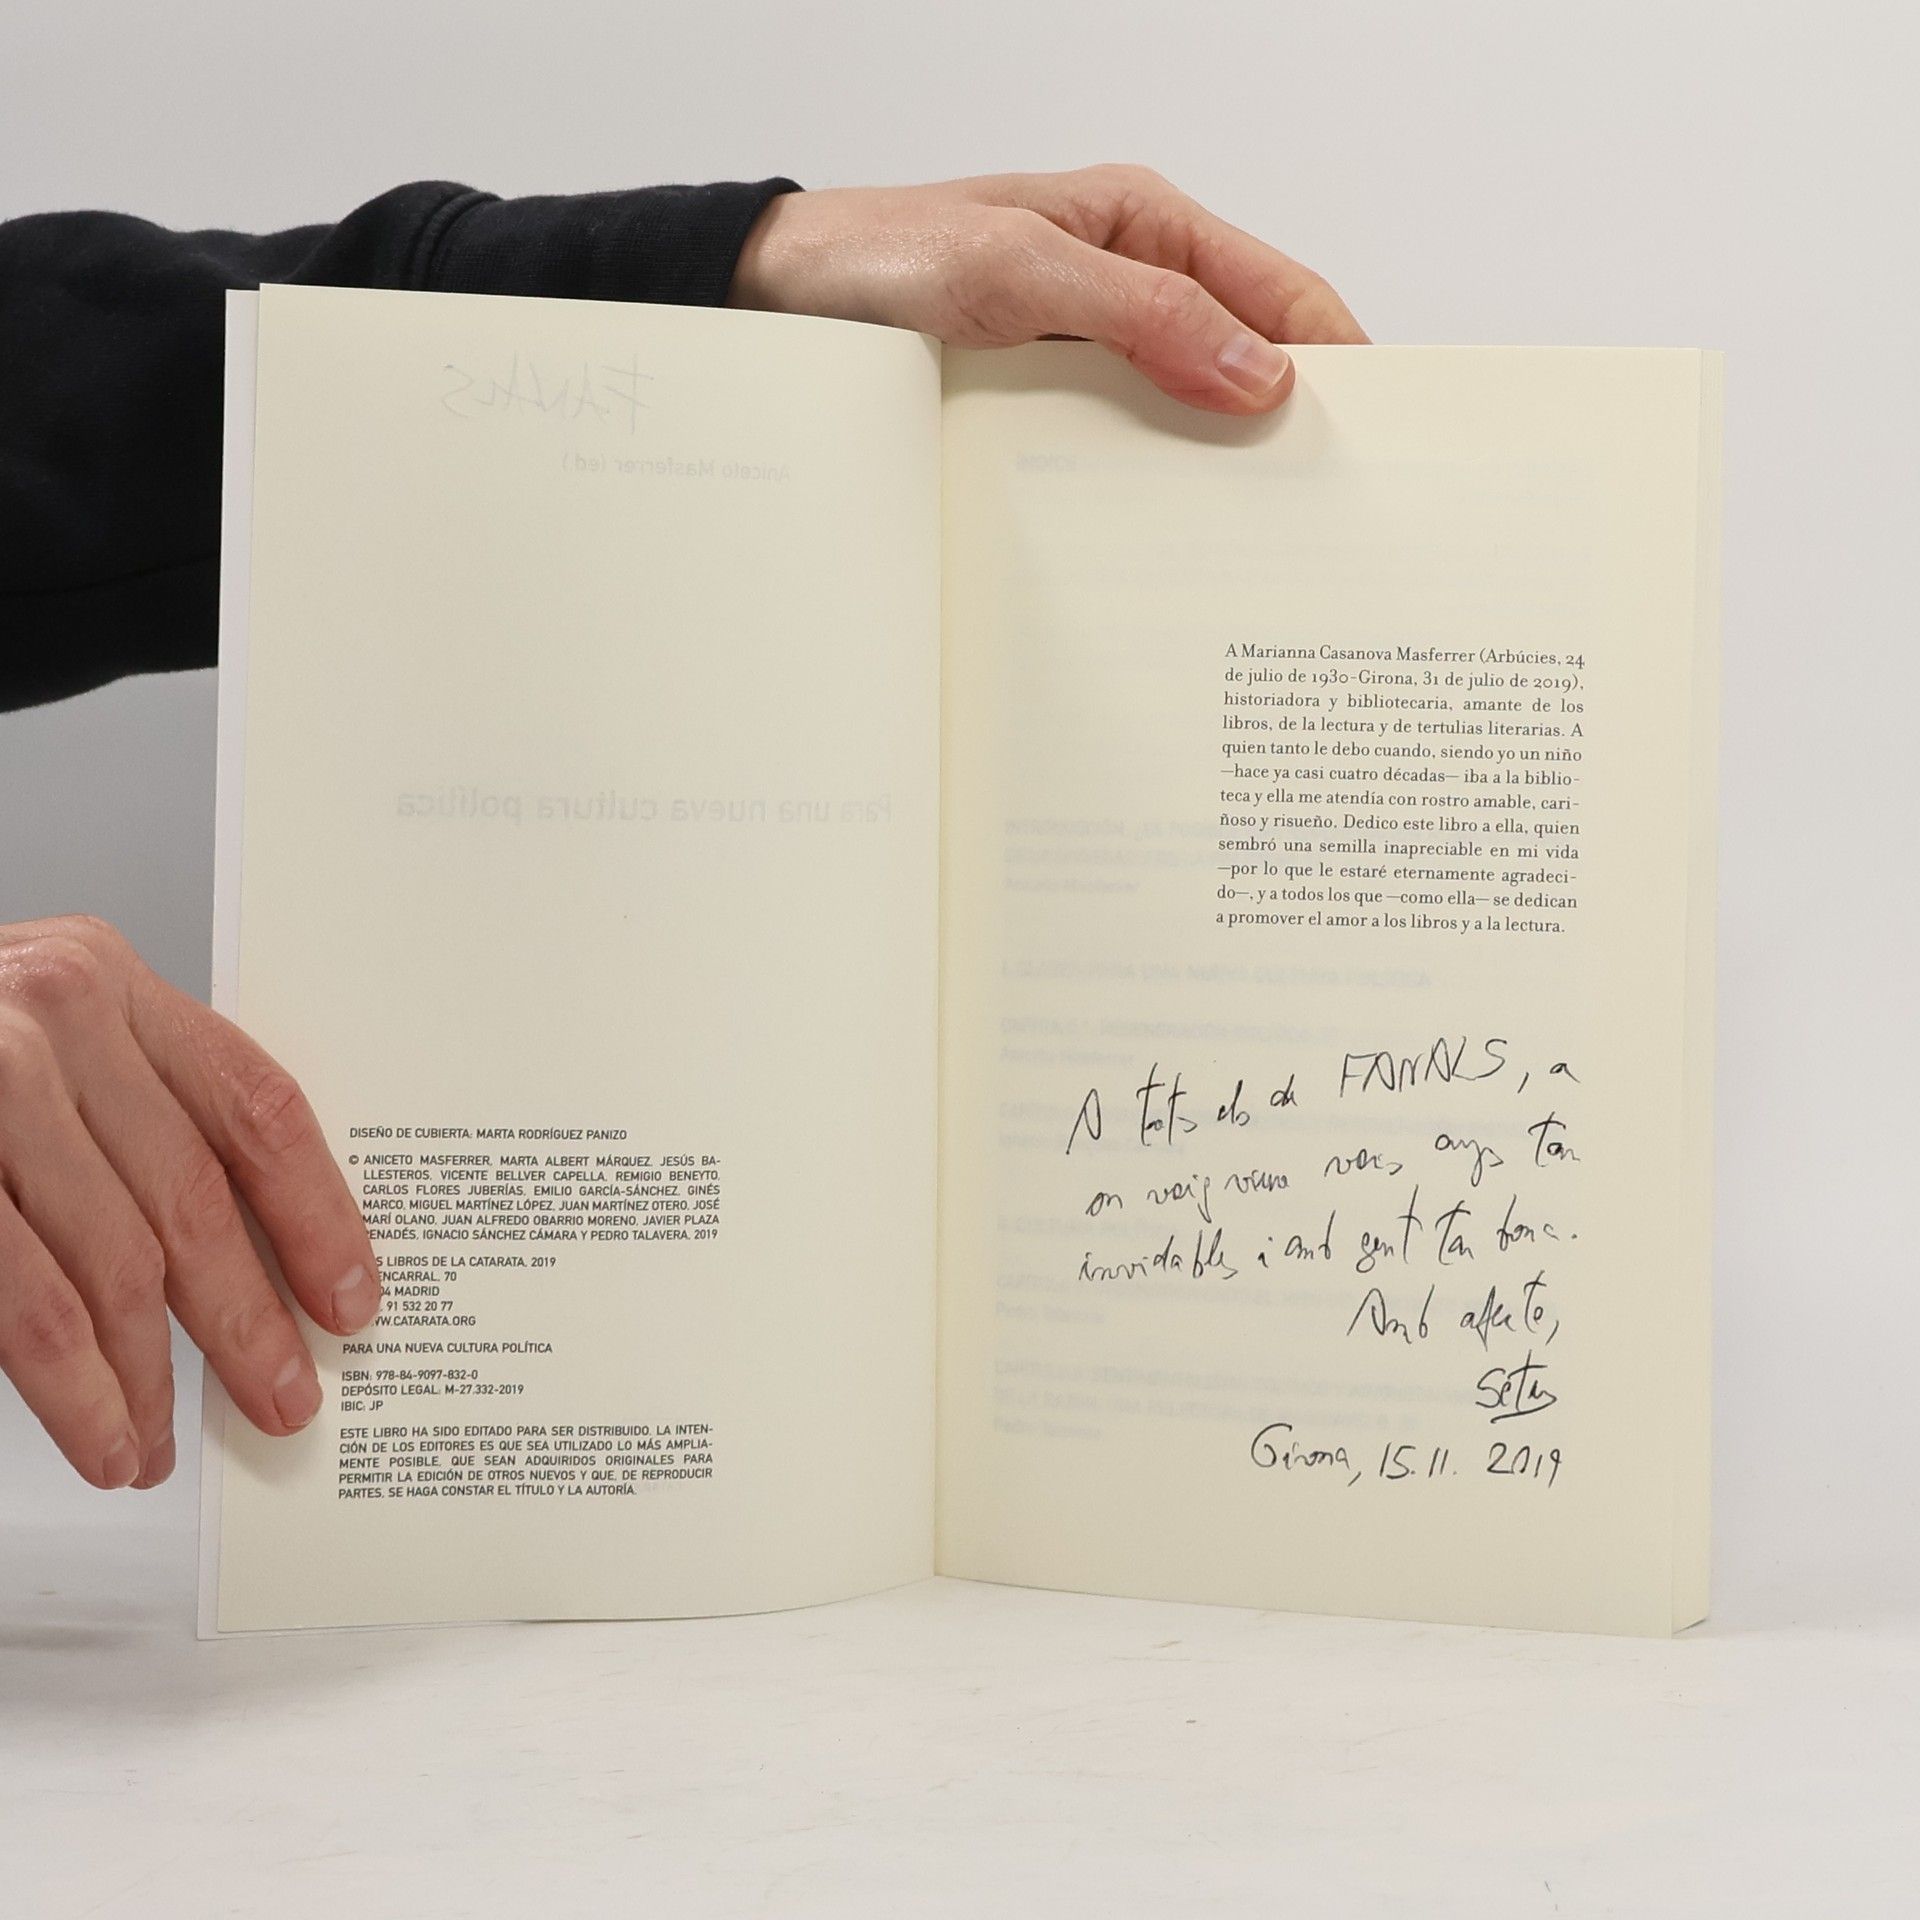 FANALS
Aniceto Masferrer (ed.)
Para una nueva cultura política
DISEÑO DE CUBIERTA: MARTA RODRÍGUEZ PANIZO
© ANICETO MASFERRER, MARTA ALBERT MÁRQUEZ, JESÚS BA-
LLESTEROS, VICENTE BELLVER CAPELLA, REMIGIO BENEYTO,
CARLOS FLORES JUBERÍAS, EMILIO GARCÍA-SÁNCHEZ, GINÉS
MARCO, MIGUEL MARTÍNEZ LÓPEZ, JUAN MARTÍNEZ OTERO, JOSÉ
MARÍ OLANO, JUAN ALFREDO OBARRIO MORENO, JAVIER PLAZA
PENADÉS, IGNACIO SÁNCHEZ CÁMARA Y PEDRO TALAVERA, 2019
S LIBROS DE LA CATARATA, 2019
ENCARRAL, 70
04 MADRID
. 91 532 20 77
WW.CATARATA.ORG
PARA UNA NUEVA CULTURA POLÍTICA
ISBN: 978-84-9097-832-0
DEPÓSITO LEGAL: M-27.332-2019
IBIC: JP
ESTE LIBRO HA SIDO EDITADO PARA SER DISTRIBUIDO. LA INTEN-
CIÓN DE LOS EDITORES ES QUE SEA UTILIZADO LO MÁS AMPLIA-
MENTE POSIBLE, QUE SEAN ADQUIRIDOS ORIGINALES PARA
PERMITIR LA EDICIÓN DE OTROS NUEVOS Y QUE, DE REPRODUCIR
PARTES, SE HAGA CONSTAR EL TÍTULO Y LA AUTORÍA.
A Marianna Casanova Masferrer (Arbúcies, 24
de julio de 1930-Girona, 31 de julio de 2019),
historiadora y bibliotecaria, amante de los
libros, de la lectura y de tertulias literarias. A
quien tanto le debo cuando, siendo yo un niño
—hace ya casi cuatro décadas— iba a la biblio-
teca y ella me atendía con rostro amable, cari-
ñoso y risueño. Dedico este libro a ella, quien
sembró una semilla inapreciable en mi vida
—por lo que le estaré eternamente agradeci-
do—, y a todos los que —como ella— se dedican
a promover el amor a los libros y a la lectura.
A tots els de FANALS, a
on vaig viure uns anys tan
inoidables i amb gent tan bona.
Amb afecte,
Girona, 15.11. 2019